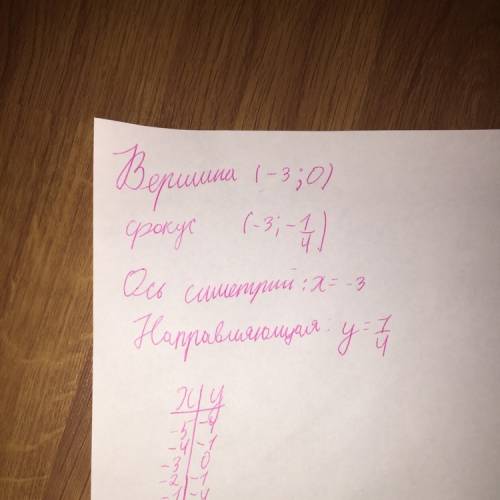 Вершина (-3;0)
фокус (-3;-1/4)
Ось симетрий: x = -3
Направляющая: y = 1/4
x | y
-5 | -4
-4 | -1
-3 | 0
-2 | -1
-1 | -4